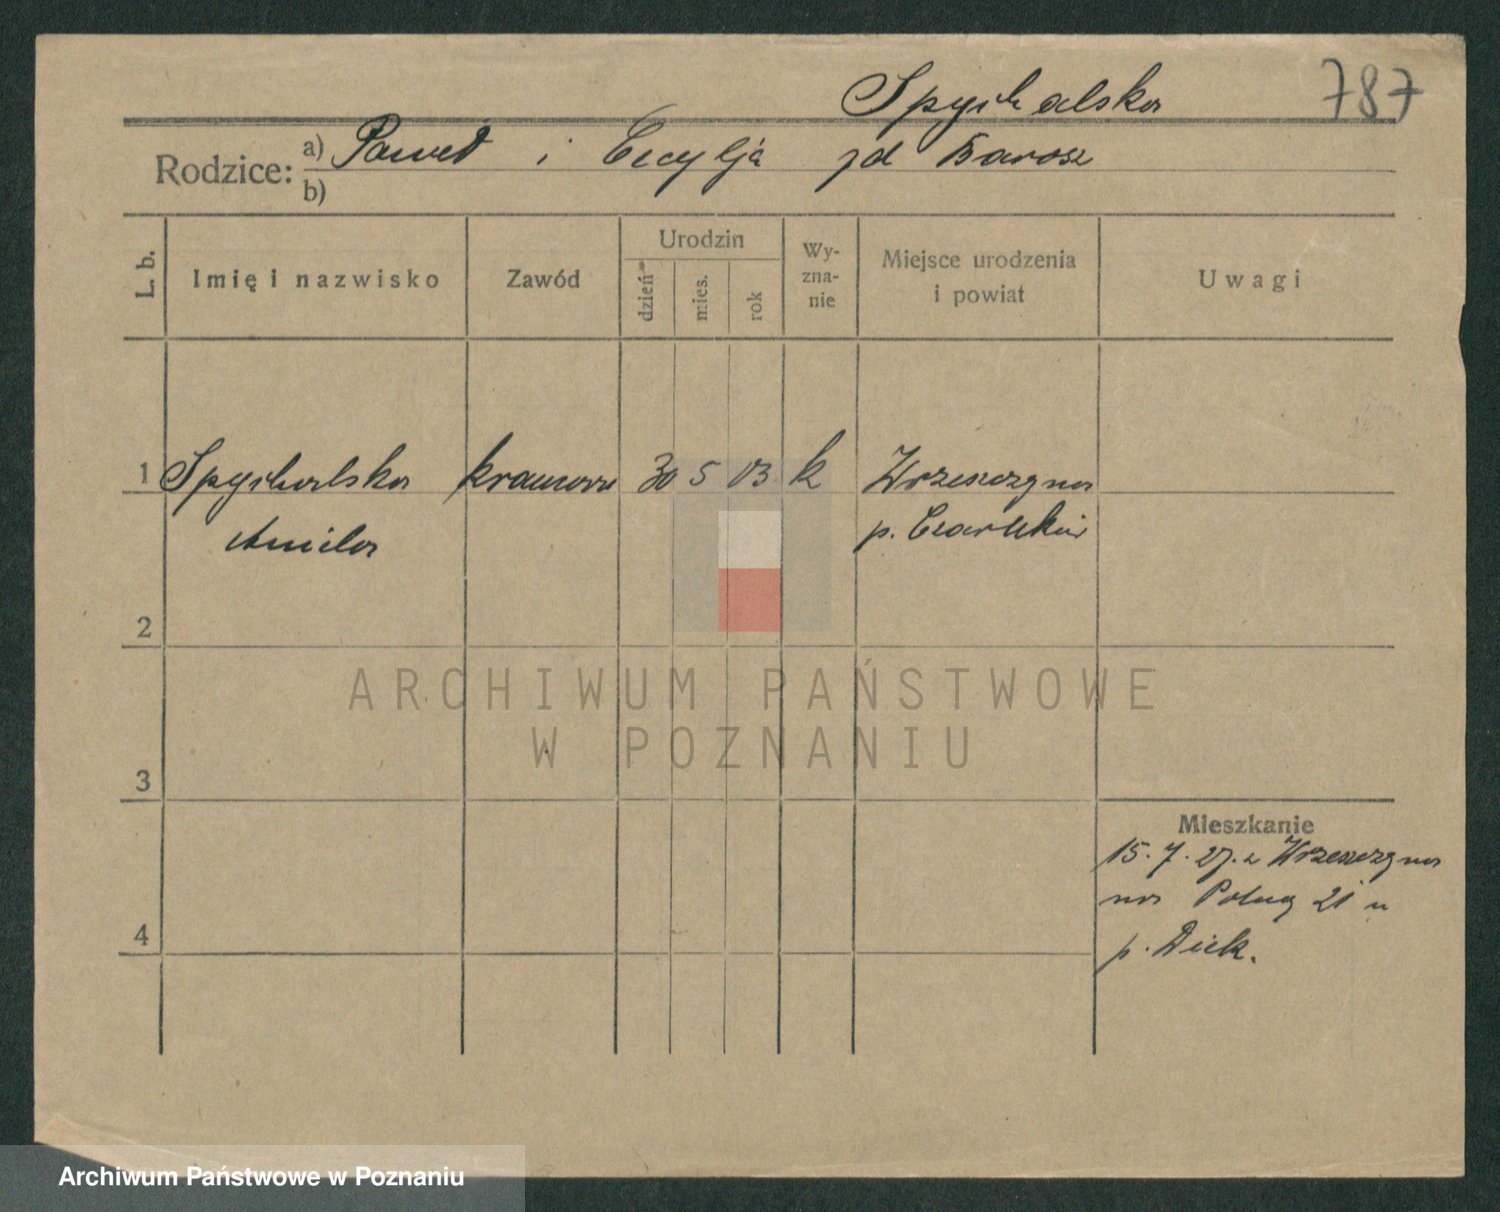 Spychalska
787
Rodzice:
a) Paweł i Cecylja zd Barosz
b)
L. b.
Imię i nazwisko
Zawód
Urodzin
dzień
mies.
rok
Wy-
zna-
nie
Miejsce urodzenia
i powiat
Uwagi
1 Spychalska krawcowa 30 5 03 k Wrzeszczyna
Aniela p. Czarnków
2
ARCHIWUM PAŃSTWOWE
W POZNANIU
3
Mieszkanie
15. 7. 27. z Wrzeszczyna
na 21 u
4
p. Dick.
Archiwum Państwowe w Poznaniu